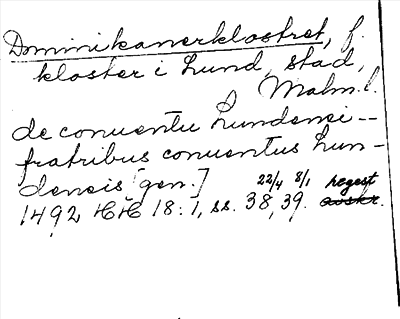 Dominikanerklostret, f.
kloster i Lund, stad,
Malm.l.
de conuentu Lundensi --
fratribus conuentus Lun-
densis [gen.]
22/4 8/1 regest
1492 HH 18:1, ss. 38, 39. avskr.